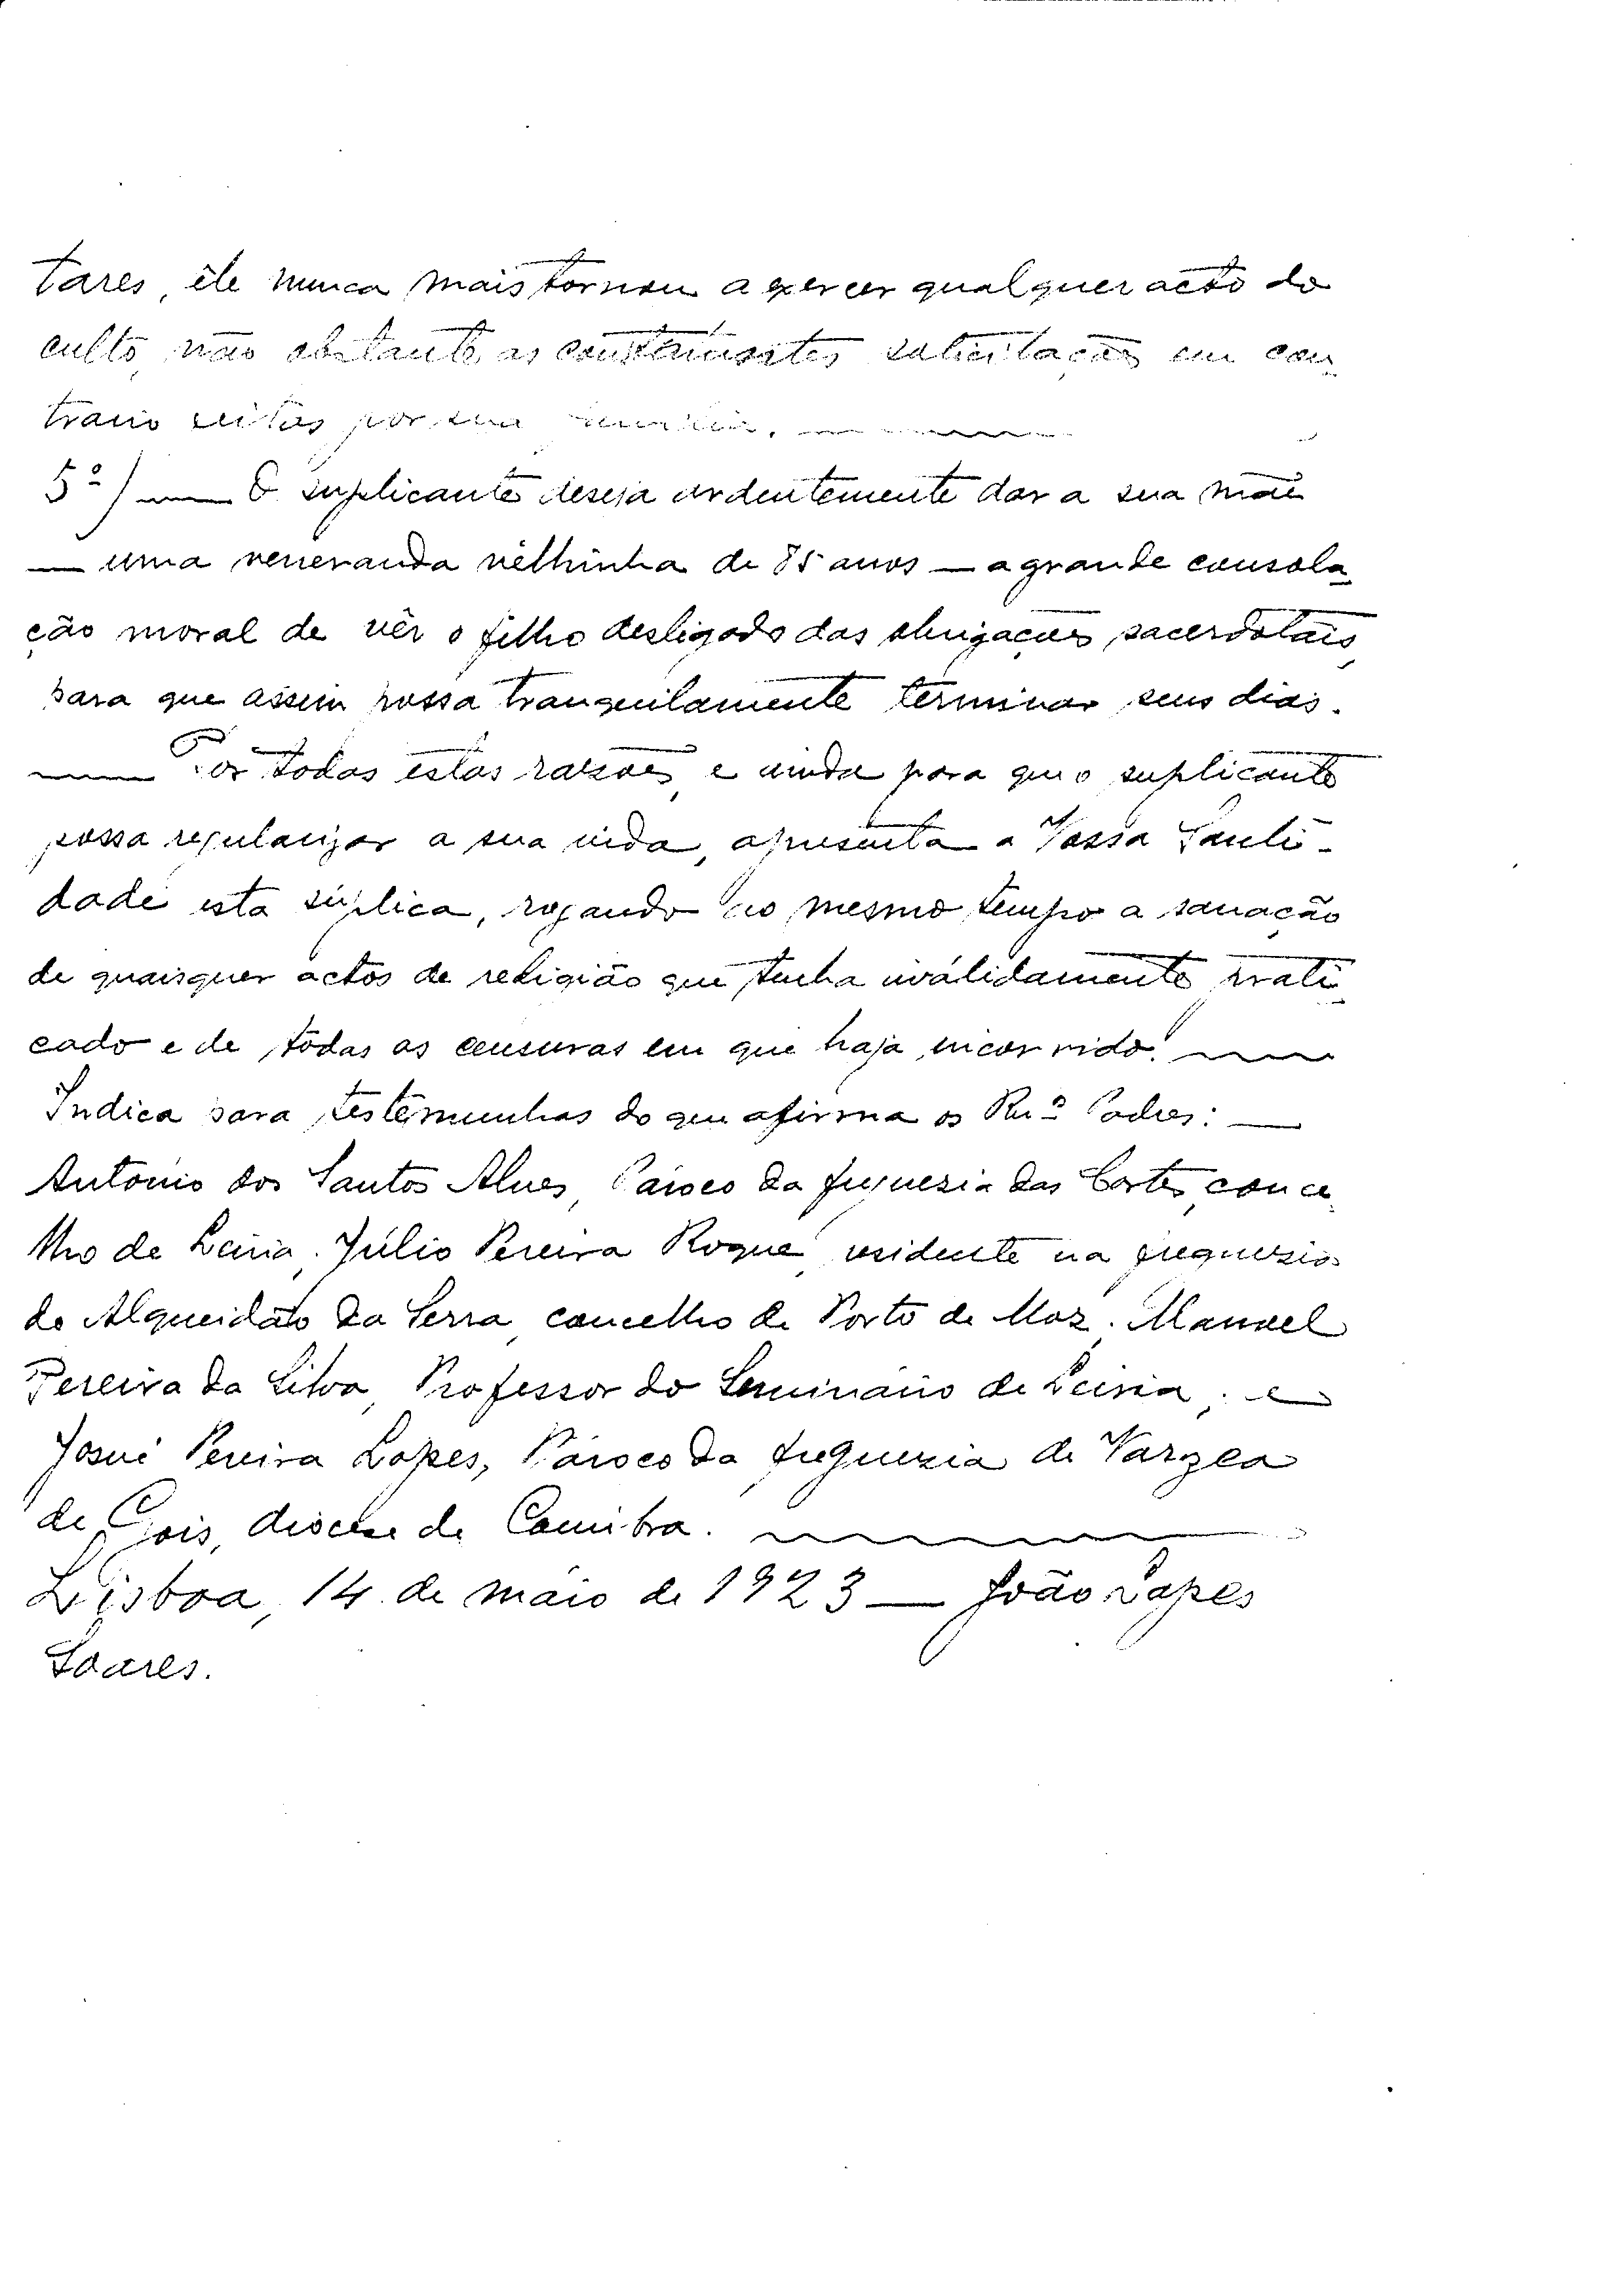 tares, êle nunca mais tornou a exercer qualquer acto do
culto, não obstante as constantes solicitações em con-
trario feitas por sua familia.
5º) — O suplicante deseja ardentemente dar a sua mãe
— uma veneranda velhinha de 85 anos — a grande consola-
ção moral de vêr o filho desligado das obrigações sacerdotais,
para que assim possa tranquilamente terminar seus dias.
— Por todas estas razões, e ainda para que o suplicante
possa regularizar a sua vida, apresenta a Vossa Santi-
dade esta súplica, rogando ao mesmo tempo a sanação
de quaisquer actos de religião que tenha inválidamente prati-
cado e de tôdas as censuras em que haja incorrido.
Indica para testemunhas do que afirma os Rev.º Padres: —
Antonio dos Santos Alves, Pároco da freguezia das Cortes, conce-
lho de Leiria; Júlio Pereira Roque, residente na freguezia
do Alqueidão da Serra, concelho de Porto de Moz; Manuel
Pereira da Silva, Professor do Seminário de Leiria; e
Josué Pereira Lopes, Pároco da freguezia de Varzea
de Gois, diocese de Coimbra.
Lisboa, 14 de maio de 1923 — João Lopes
Soares.